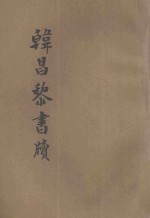 韓昌黎書牘